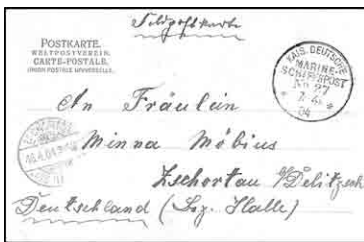 Feldpostkarte
POSTKARTE.
WELTPOSTVEREIN.
CARTE-POSTALE.
UNION POSTALE UNIVERSELLE.
KAIS. DEUTSCHE
MARINE-
SCHIFFSPOST
No 27
04
An Fräulein
Minna Möbius
Zschortau b/Delitzsch
Deutschland (Bz. Halle)